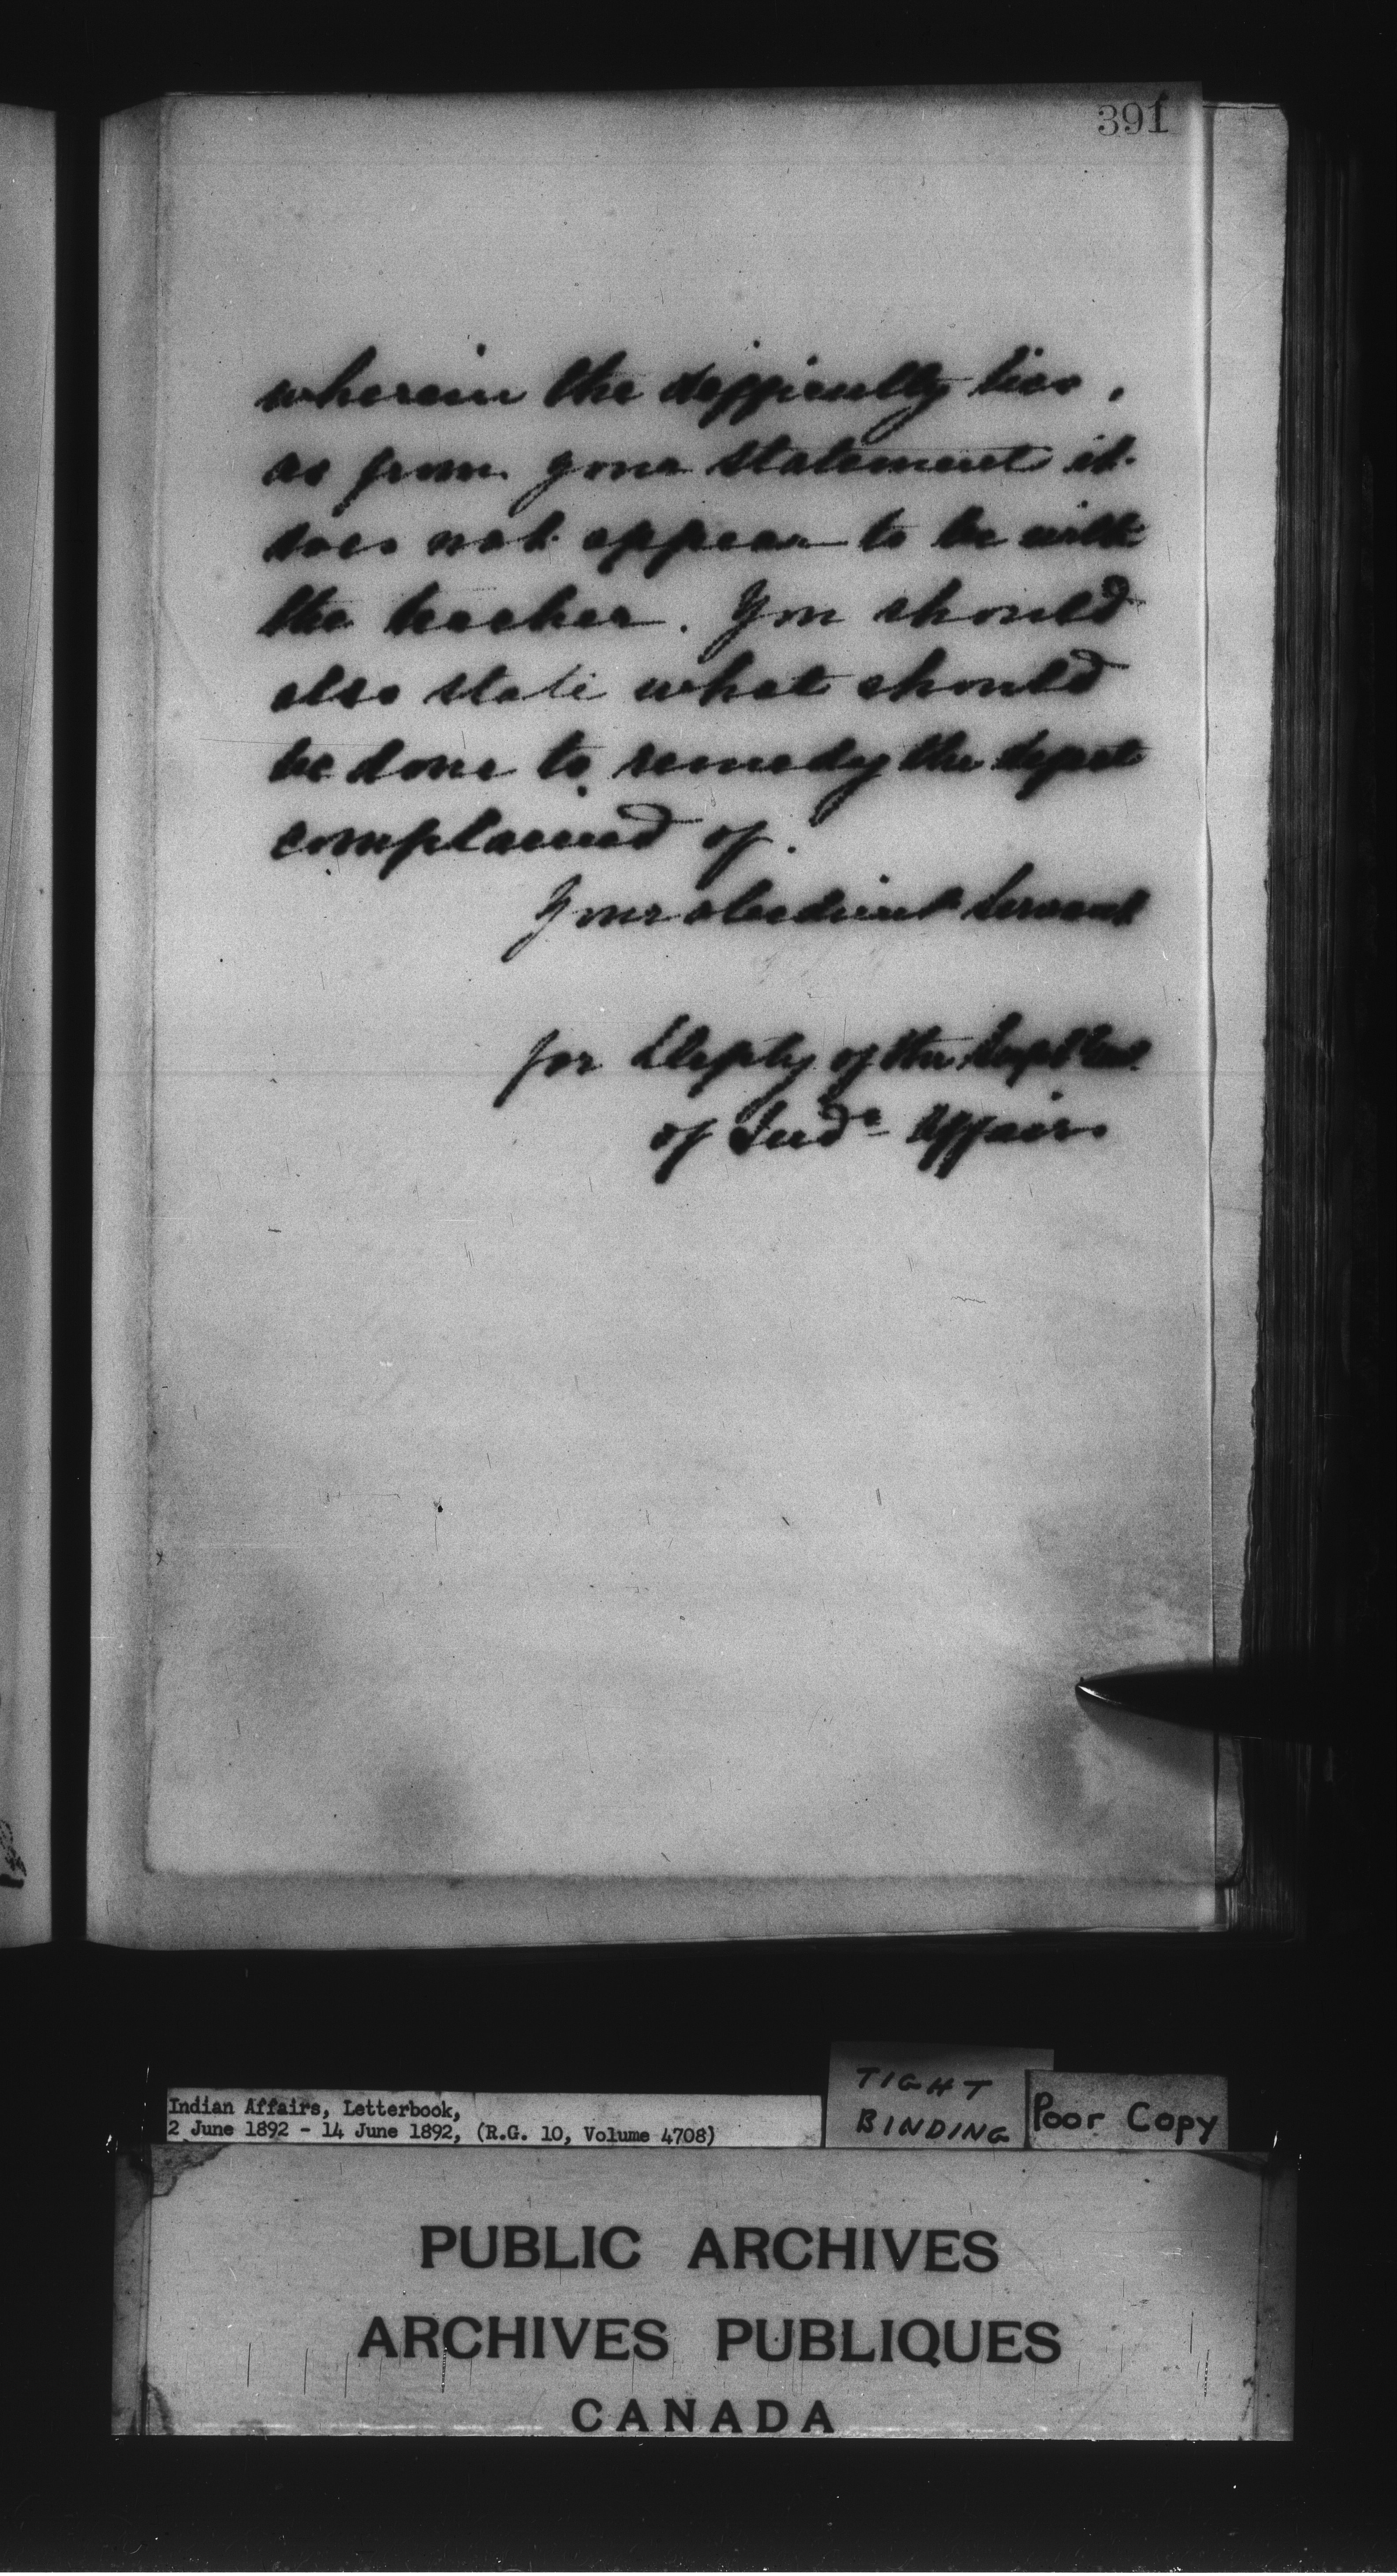 391
wherein the difficulty lies,
as from your statement it
does not appear to be with
the teacher. You should
also state what should
be done to remedy the defect
complained of.
Your obedient Servant
for Depty of the Supt Gen.
of Indn Affairs
Indian Affairs, Letterbook,
2 June 1892 - 14 June 1892, (R.G. 10, Volume 4708)
TIGHT
BINDING
Poor Copy
PUBLIC ARCHIVES
ARCHIVES PUBLIQUES
CANADA